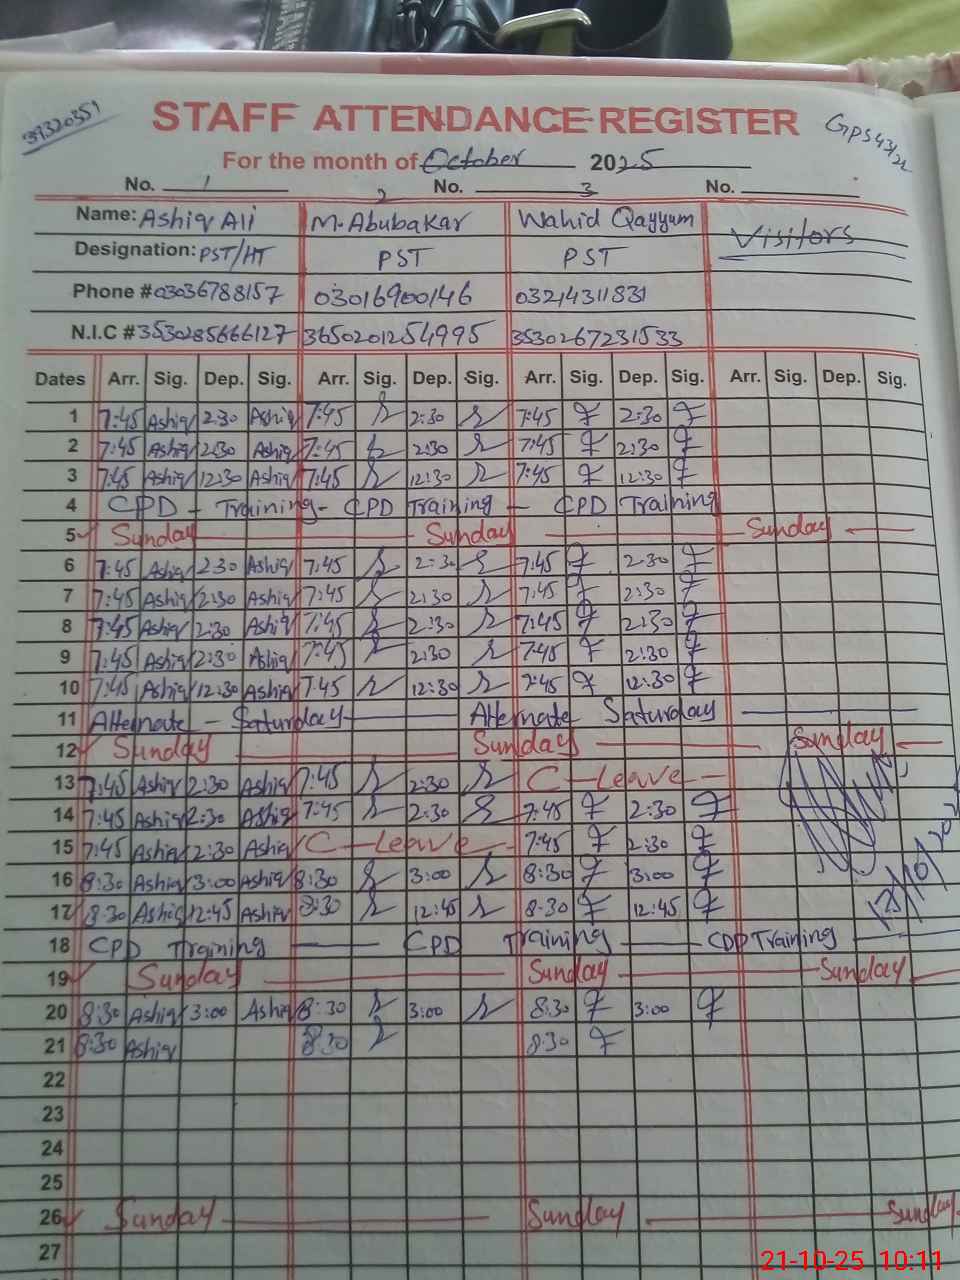 39320351
STAFF ATTENDANCE REGISTER
GPS 43/2L
For the month of October 2025
No. 1 2 No. 3 No.
Name: Ashiq Ali M. Abubakar Wahid Qayyum Visitors
Designation: PST/HT PST PST
Phone # 03036788157 03016900146 03214311831
N.I.C # 3530285666127 3650201254995 3530267231533
Dates Arr. Sig. Dep. Sig. Arr. Sig. Dep. Sig. Arr. Sig. Dep. Sig. Arr. Sig. Dep. Sig.
1 7:45 Ashiq 2:30 Ashiq 7:45 2:30 7:45 2:30
2 7:45 Ashiq 2:30 Ashiq 7:45 2:30 7:45 2:30
3 7:45 Ashiq 12:30 Ashiq 7:45 12:30 7:45 12:30
4 CPD - Training - CPD Training - CPD Training
5 Sunday Sunday Sunday
6 7:45 Ashiq 2:30 Ashiq 7:45 2:30 7:45 2:30
7 7:45 Ashiq 2:30 Ashiq 7:45 2:30 7:45 2:30
8 7:45 Ashiq 2:30 Ashiq 7:45 2:30 7:45 2:30
9 7:45 Ashiq 2:30 Ashiq 7:45 2:30 7:45 2:30
10 7:45 Ashiq 12:30 Ashiq 7:45 12:30 7:45 12:30
11 Alternate - Saturday Alternate Saturday
12 Sunday Sunday Sunday
13 7:45 Ashiq 2:30 Ashiq 7:45 2:30 C - Leave -
14 7:45 Ashiq 2:30 Ashiq 7:45 2:30 7:45 2:30
15 7:45 Ashiq 2:30 Ashiq C - Leave - 7:45 2:30
16 8:30 Ashiq 3:00 Ashiq 8:30 3:00 8:30 3:00
17 8:30 Ashiq 12:45 Ashiq 8:30 12:45 8:30 12:45
18 CPD Training CPD Training CDP Training
19 Sunday Sunday Sunday
20 8:30 Ashiq 3:00 Ashiq 8:30 3:00 8:30 3:00
21 8:30 Ashiq 8:30 8:30
22
23
24
25
26 Sunday Sunday Sunday
27
21-10-25 10:11